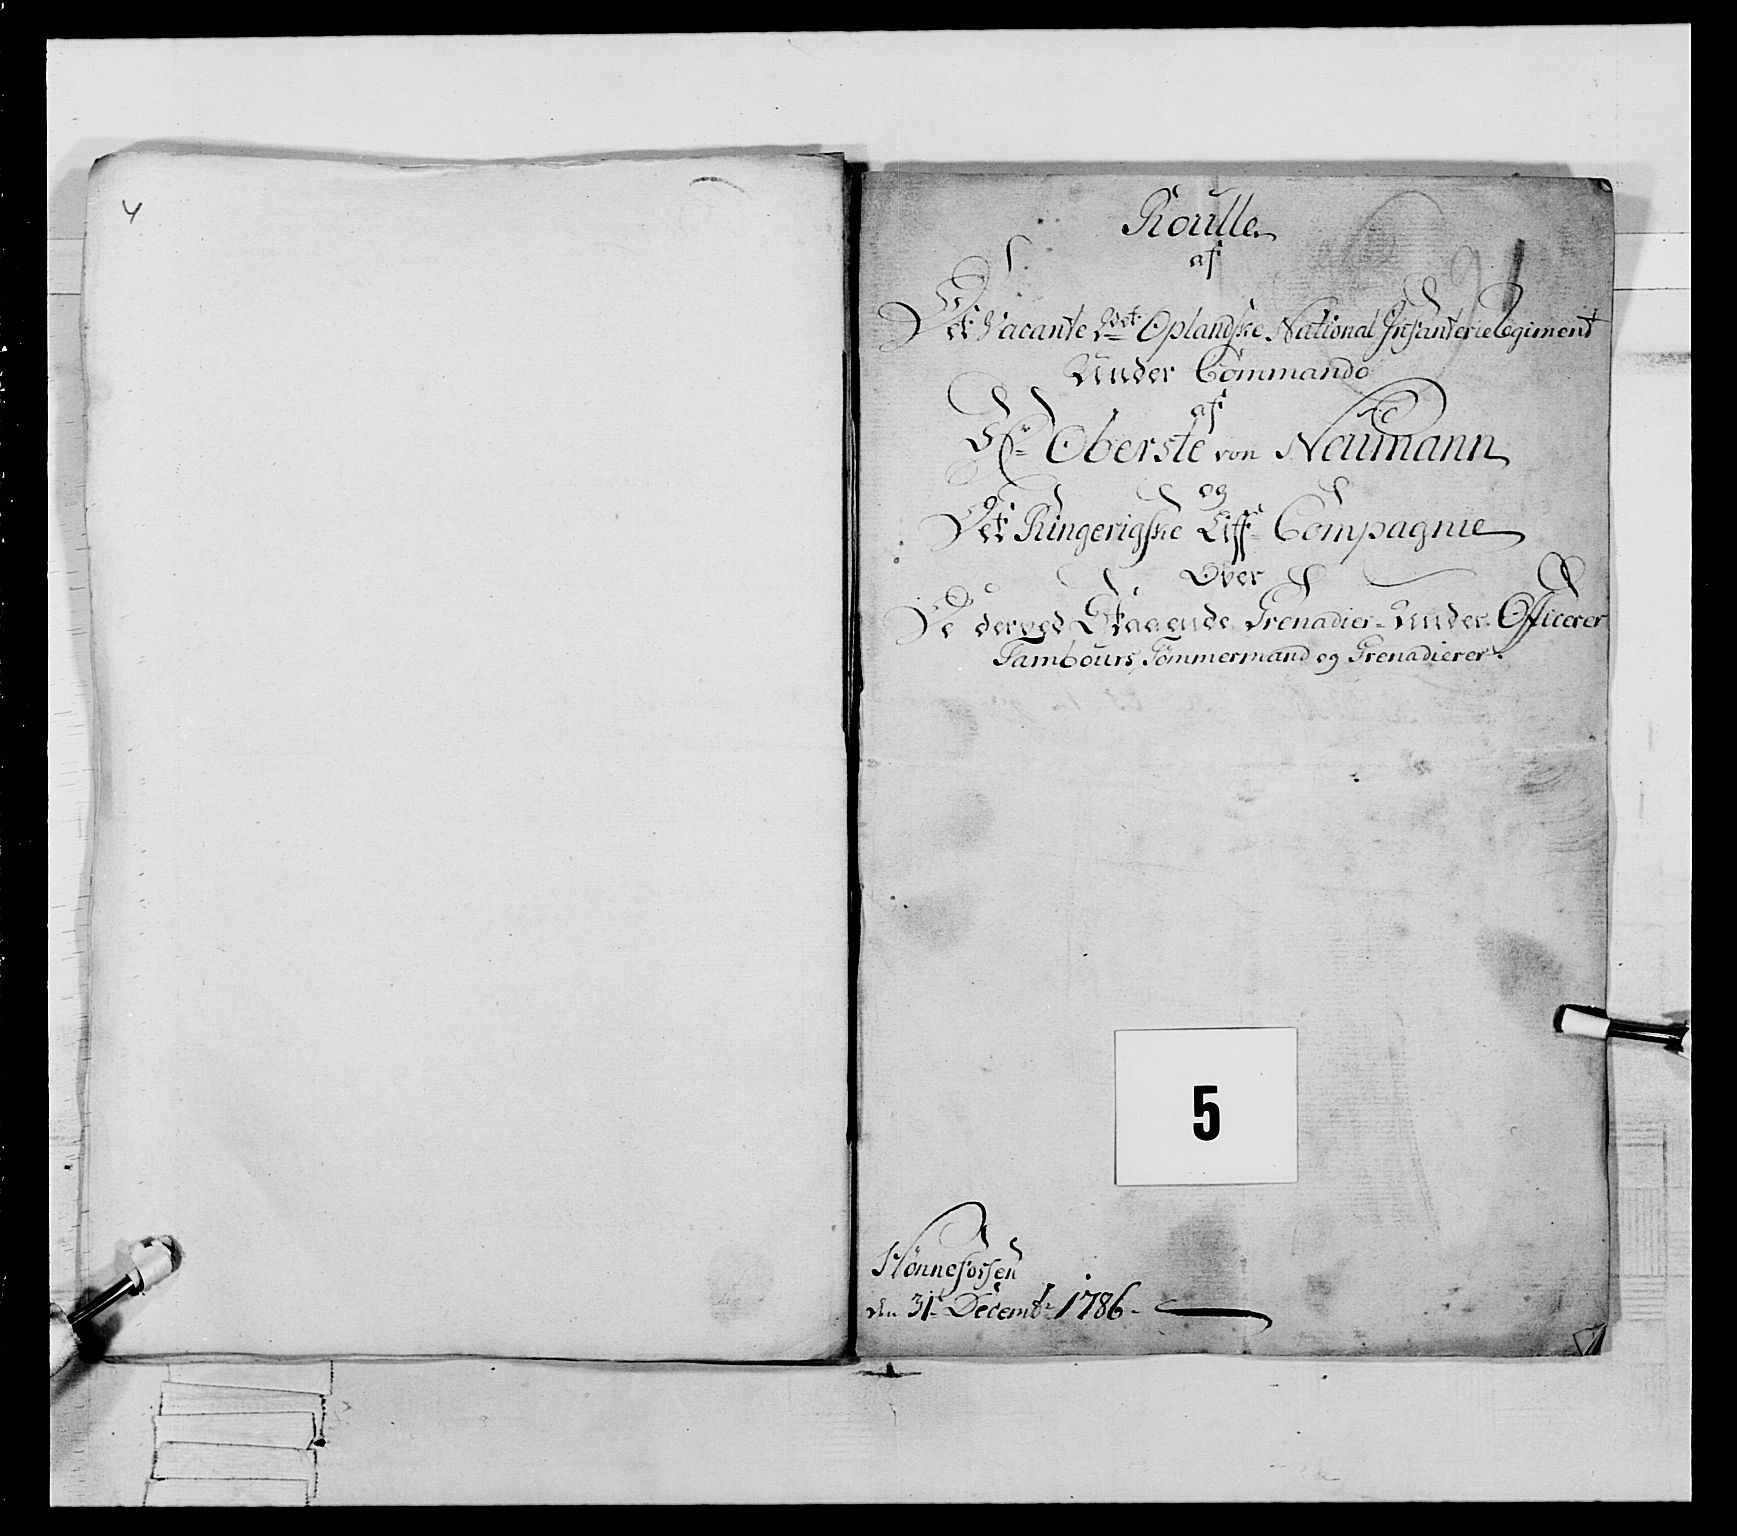 4
Roulle
af
Det Vacante 2det Oplandske National Infanterie Regiment
Under Commando
af
Hr Oberste von Neumann
og
Det Ringerigske Liff Compagnie
Over
De derved Staaende Grenadier-Under Officerer
Tambours Tømmermand og Grenadierer.
5
Hønneforsen
den 31t Decembr 1786.